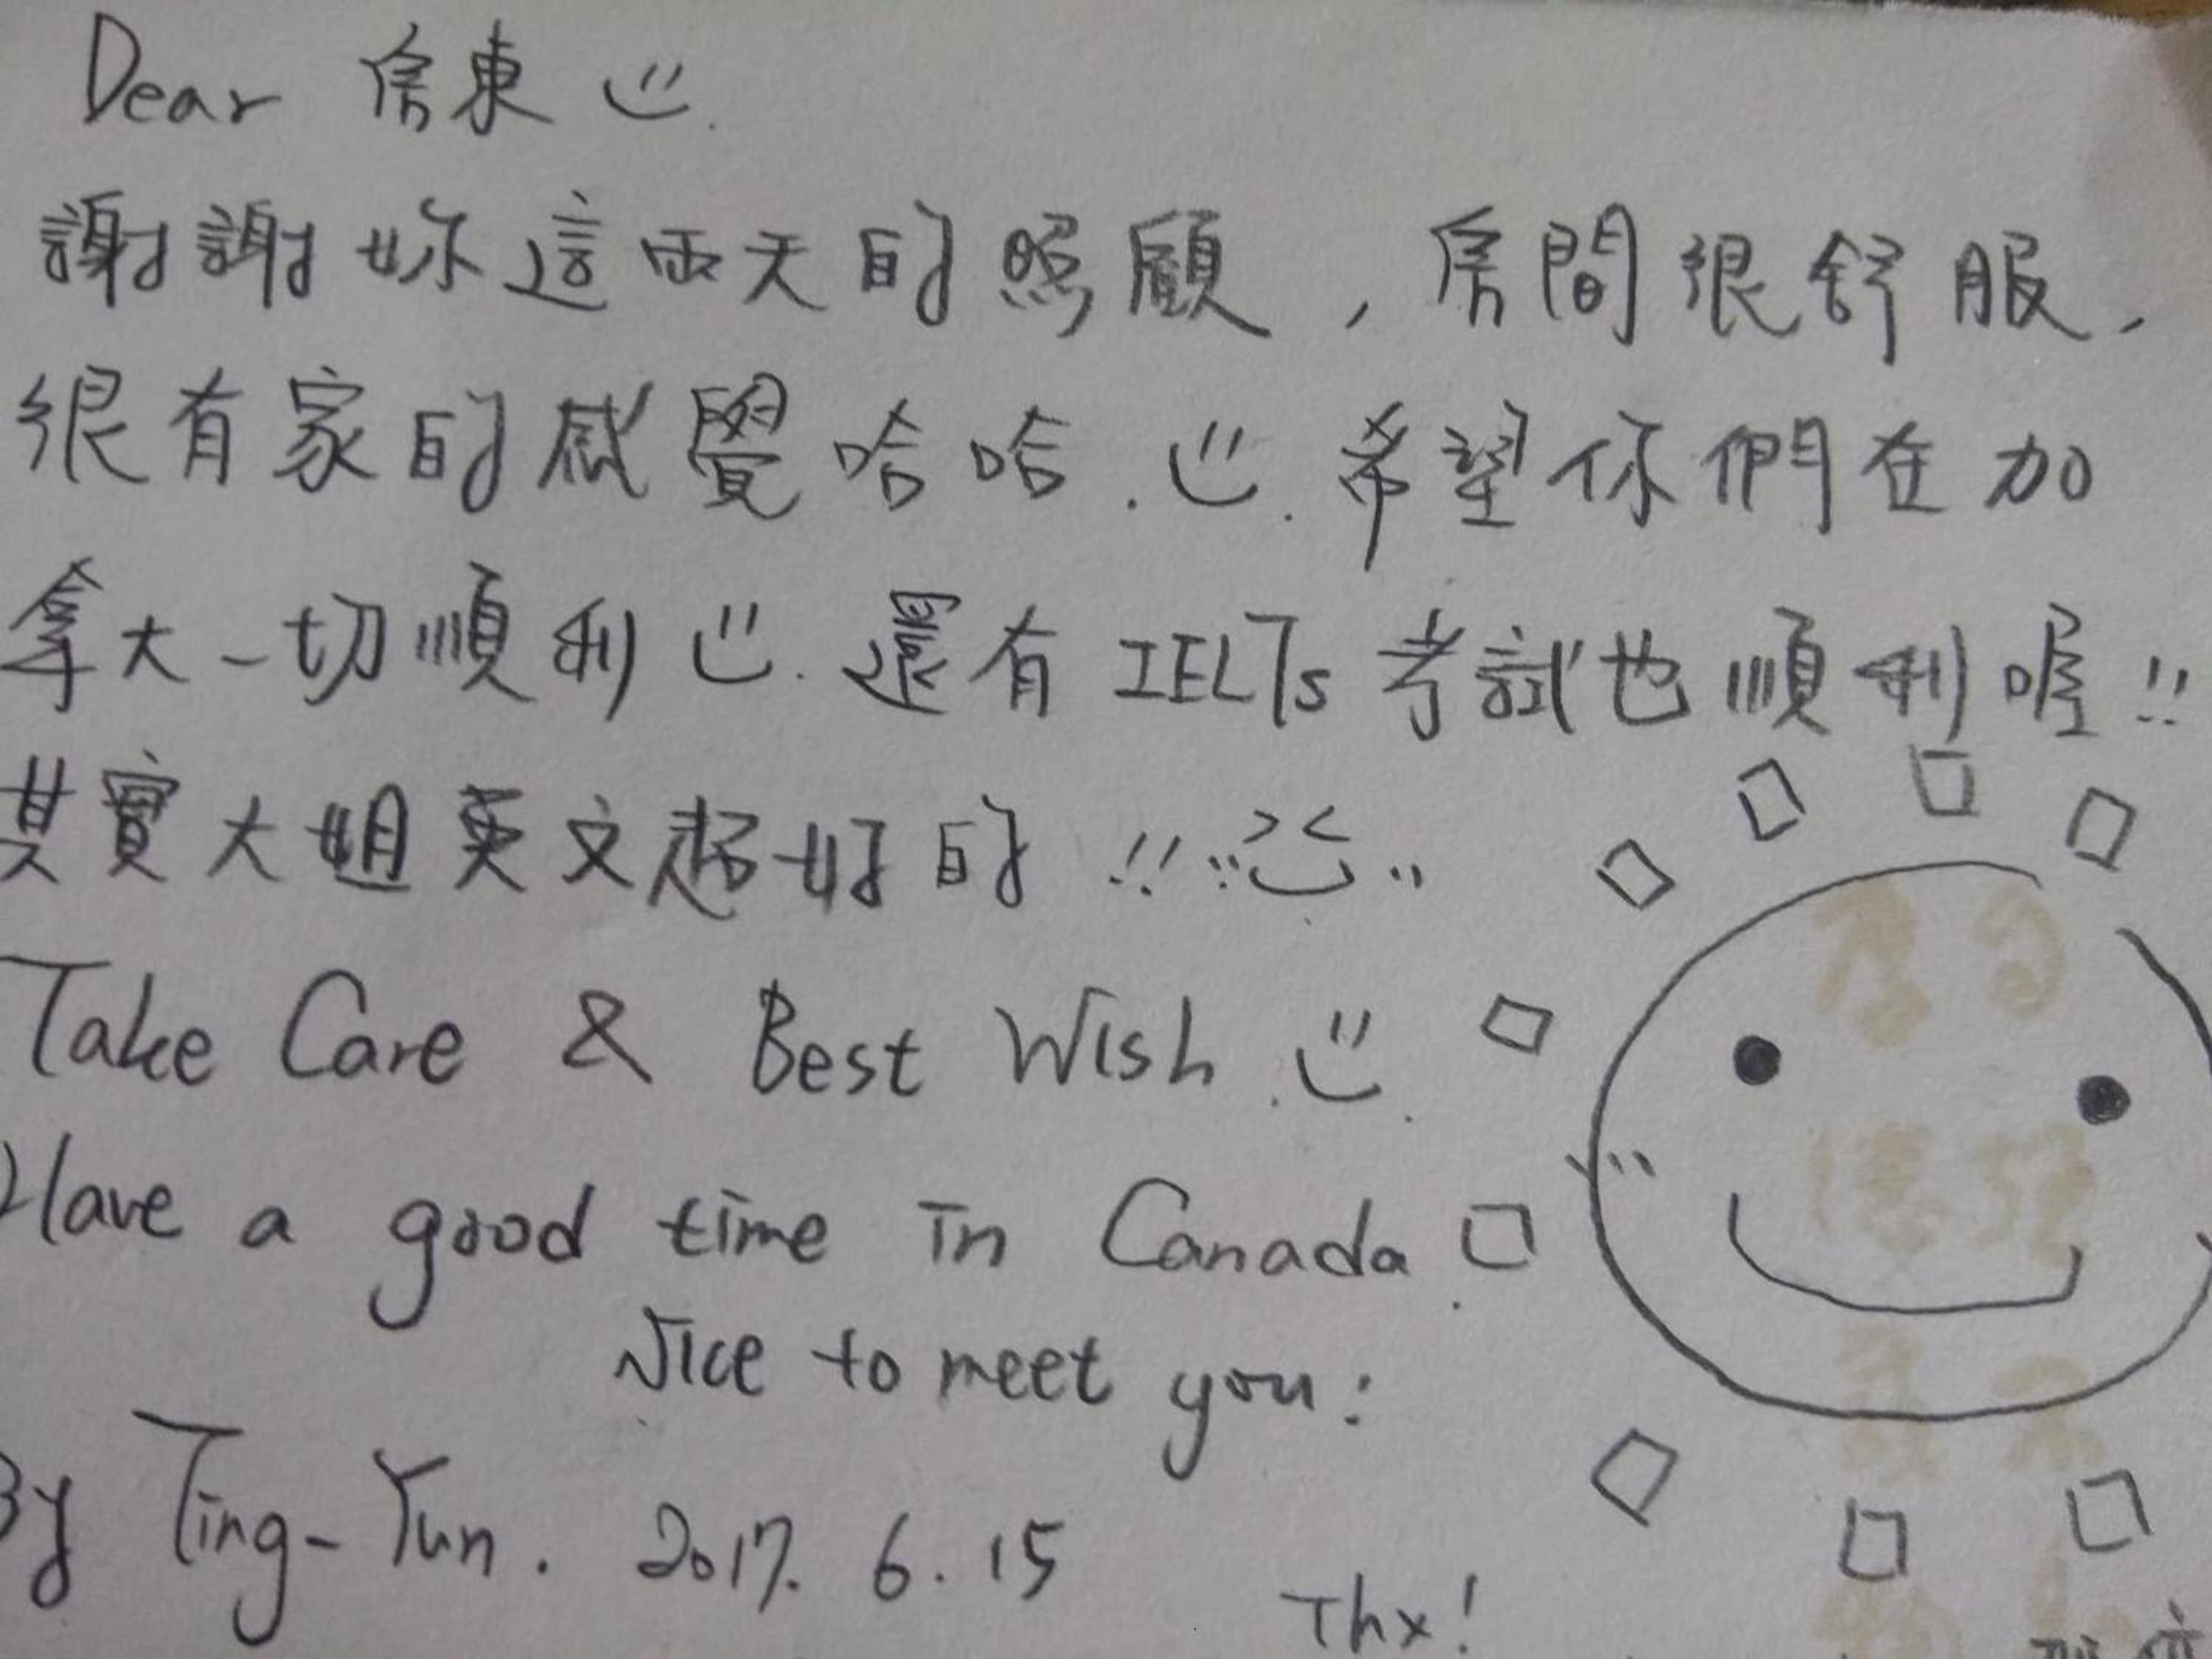 Dear 房東
謝謝妳這兩天的照顧，房間很舒服，
很有家的感覺哈哈. 希望你們在加
拿大一切順利 還有IELTs考試也順利喔!!
其實大姐英文超好的!!
Take Care & Best Wish
Have a good time in Canada.
Nice to meet you:
By Ting-Yun. 2017. 6. 15
Thx!